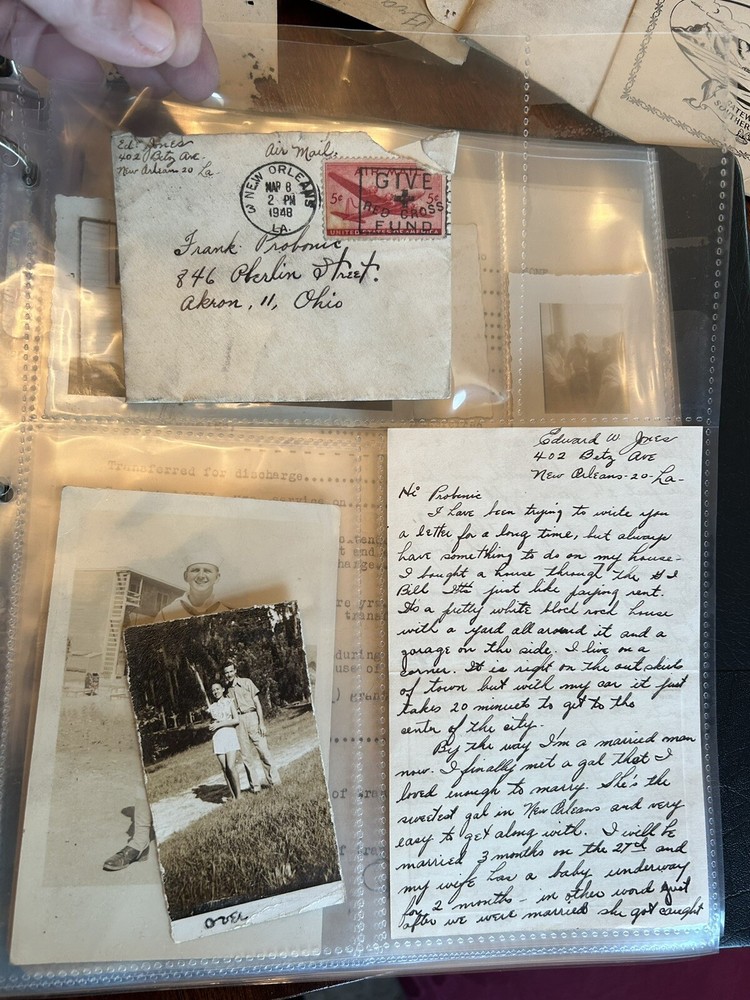 Ed. Jones
402 Betz Ave.
New Orleans 20 La
Air Mail.
NEW ORLEANS
3
MAR 8
2 PM
1948
LA.
AIR MAIL
5¢ 5¢
UNITED STATES OF AMERICA
GIVE
RED CROSS
FUND
Frank Probonic
846 Oberlin Street.
Akron, 11, Ohio
Transferred for discharge
Edward W Jones
402 Betz Ave
New Orleans-20-La-
Hi Probonic
I have been trying to write you
a letter for a long time, but always
have something to do on my house-
I bought a house through the G I
Bill Its just like paying rent.
Its a pretty white block rock house
with a yard all around it and a
garage on the side. I live on a
corner. It is right on the outskirts
of town but with my car it just
takes 20 minuets to get to the
center of the city.
By the way I'm a married man
now. I finally met a gal that I
loved enough to marry. She's the
sweetest gal in New Orleans and very
easy to get along with. I will be
married 3 months on the 27th and
my wife has a baby underway
for 2 months - in other word just
after we were married she got caught